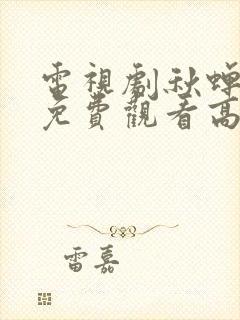 電視劇秋蟬
免費觀看高
雷嘉